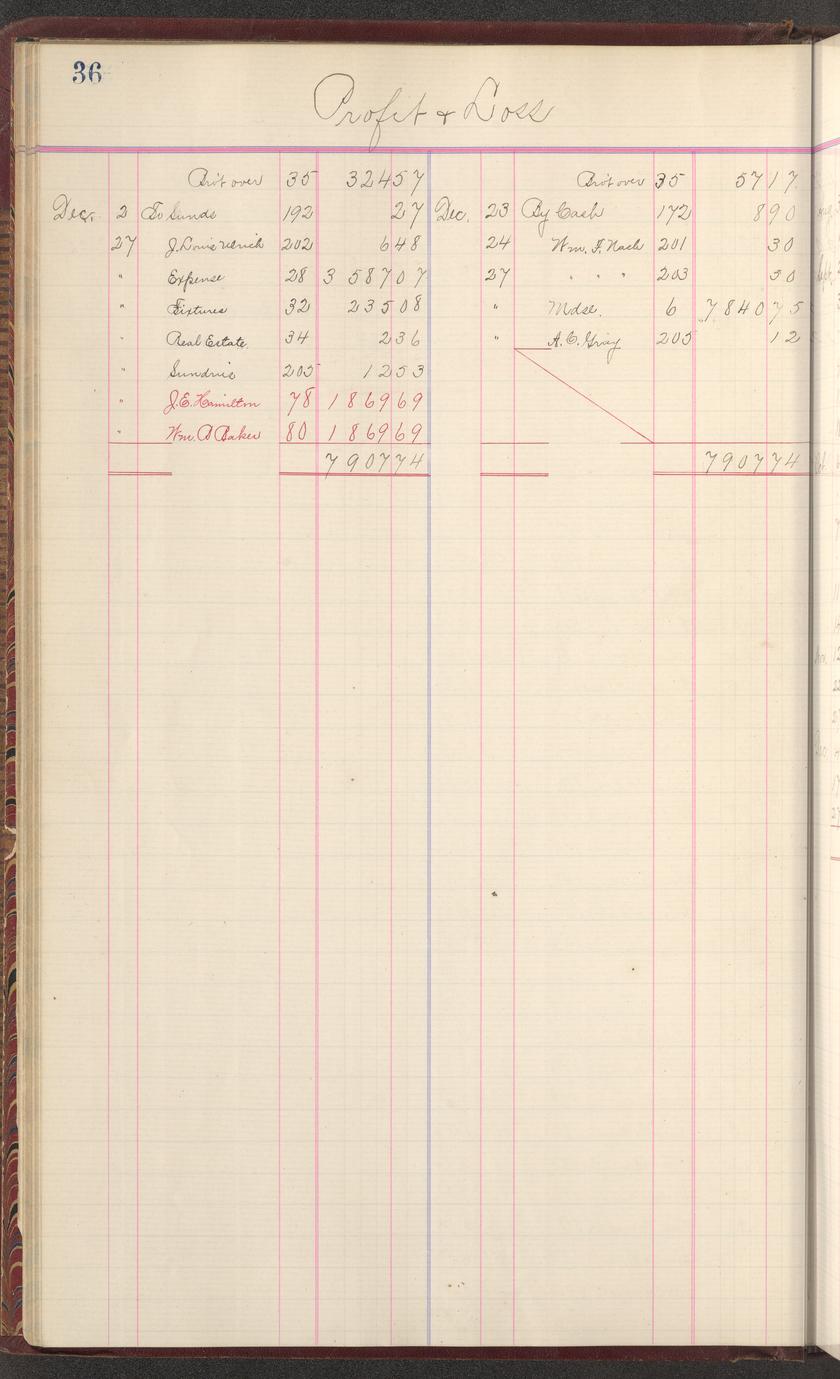 36
Profit & Loss
Bro't over 35 324 57 Bro't over 35 57 17
Dec. 2 To Sunds 192 27 Dec. 23 By Cash 172 8 90
27 J. Louis 202 6 48 24 Wm. F. Nash 201 30
" Expense 28 3 587 07 27 " " " 203 50
" Fixtures 32 235 08 " Mdse. 6 7 840 75
" Real Estate. 34 2 36 " A. C. Gray 205 12
" Sundries 205 12 53
" J. E. Hamilton 78 1 869 69
" Wm. D Baker 80 1 869 69
7 907 74 7 907 74